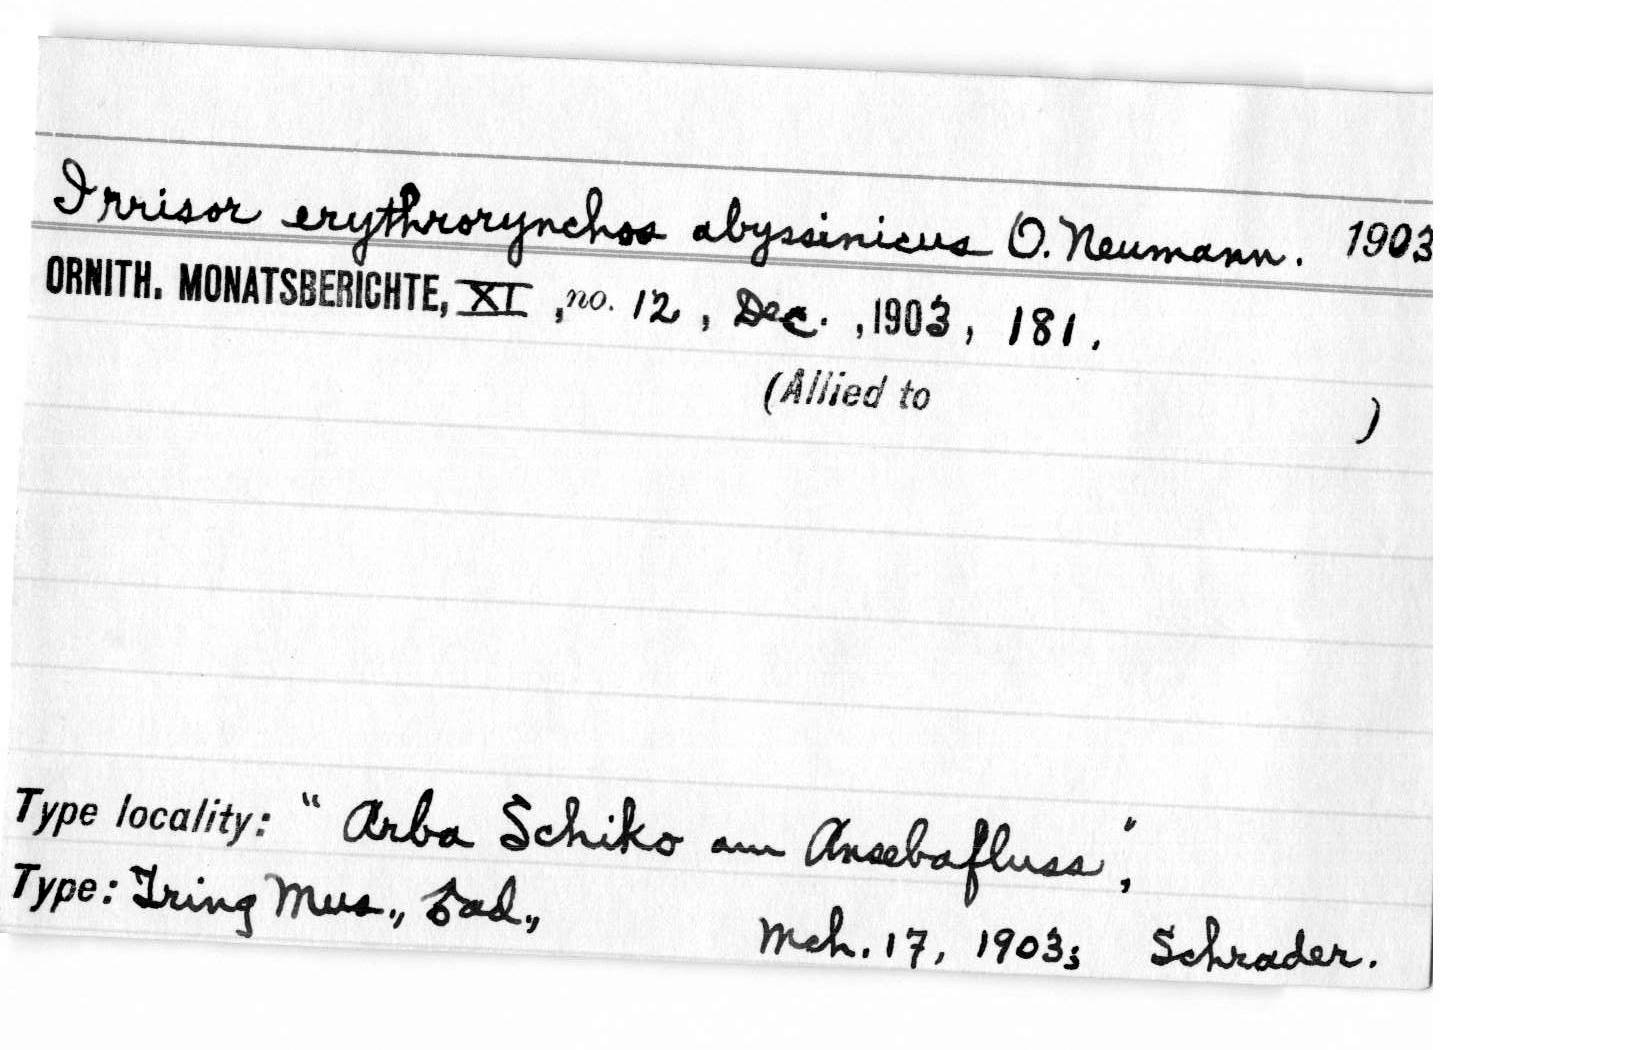 Irrisor erythrorynchos abyssinicus O. Neumann. 1903
ORNITH. MONATSBERICHTE, XI, no. 12, Dec., 1903, 181.
(Allied to )
Type locality: "Arba Schiko am Ansebafluss",
Type: Tring Mus., ♂ad., Mch. 17, 1903; Schrader.